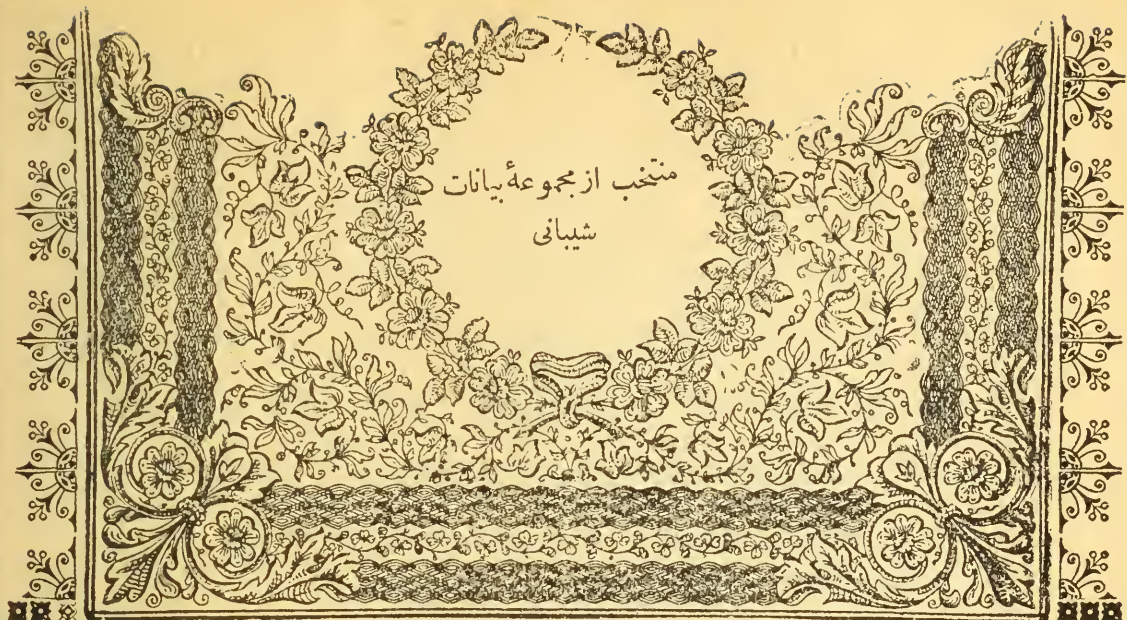 منتخب از مجموعهٔ بیانات
شیبانی